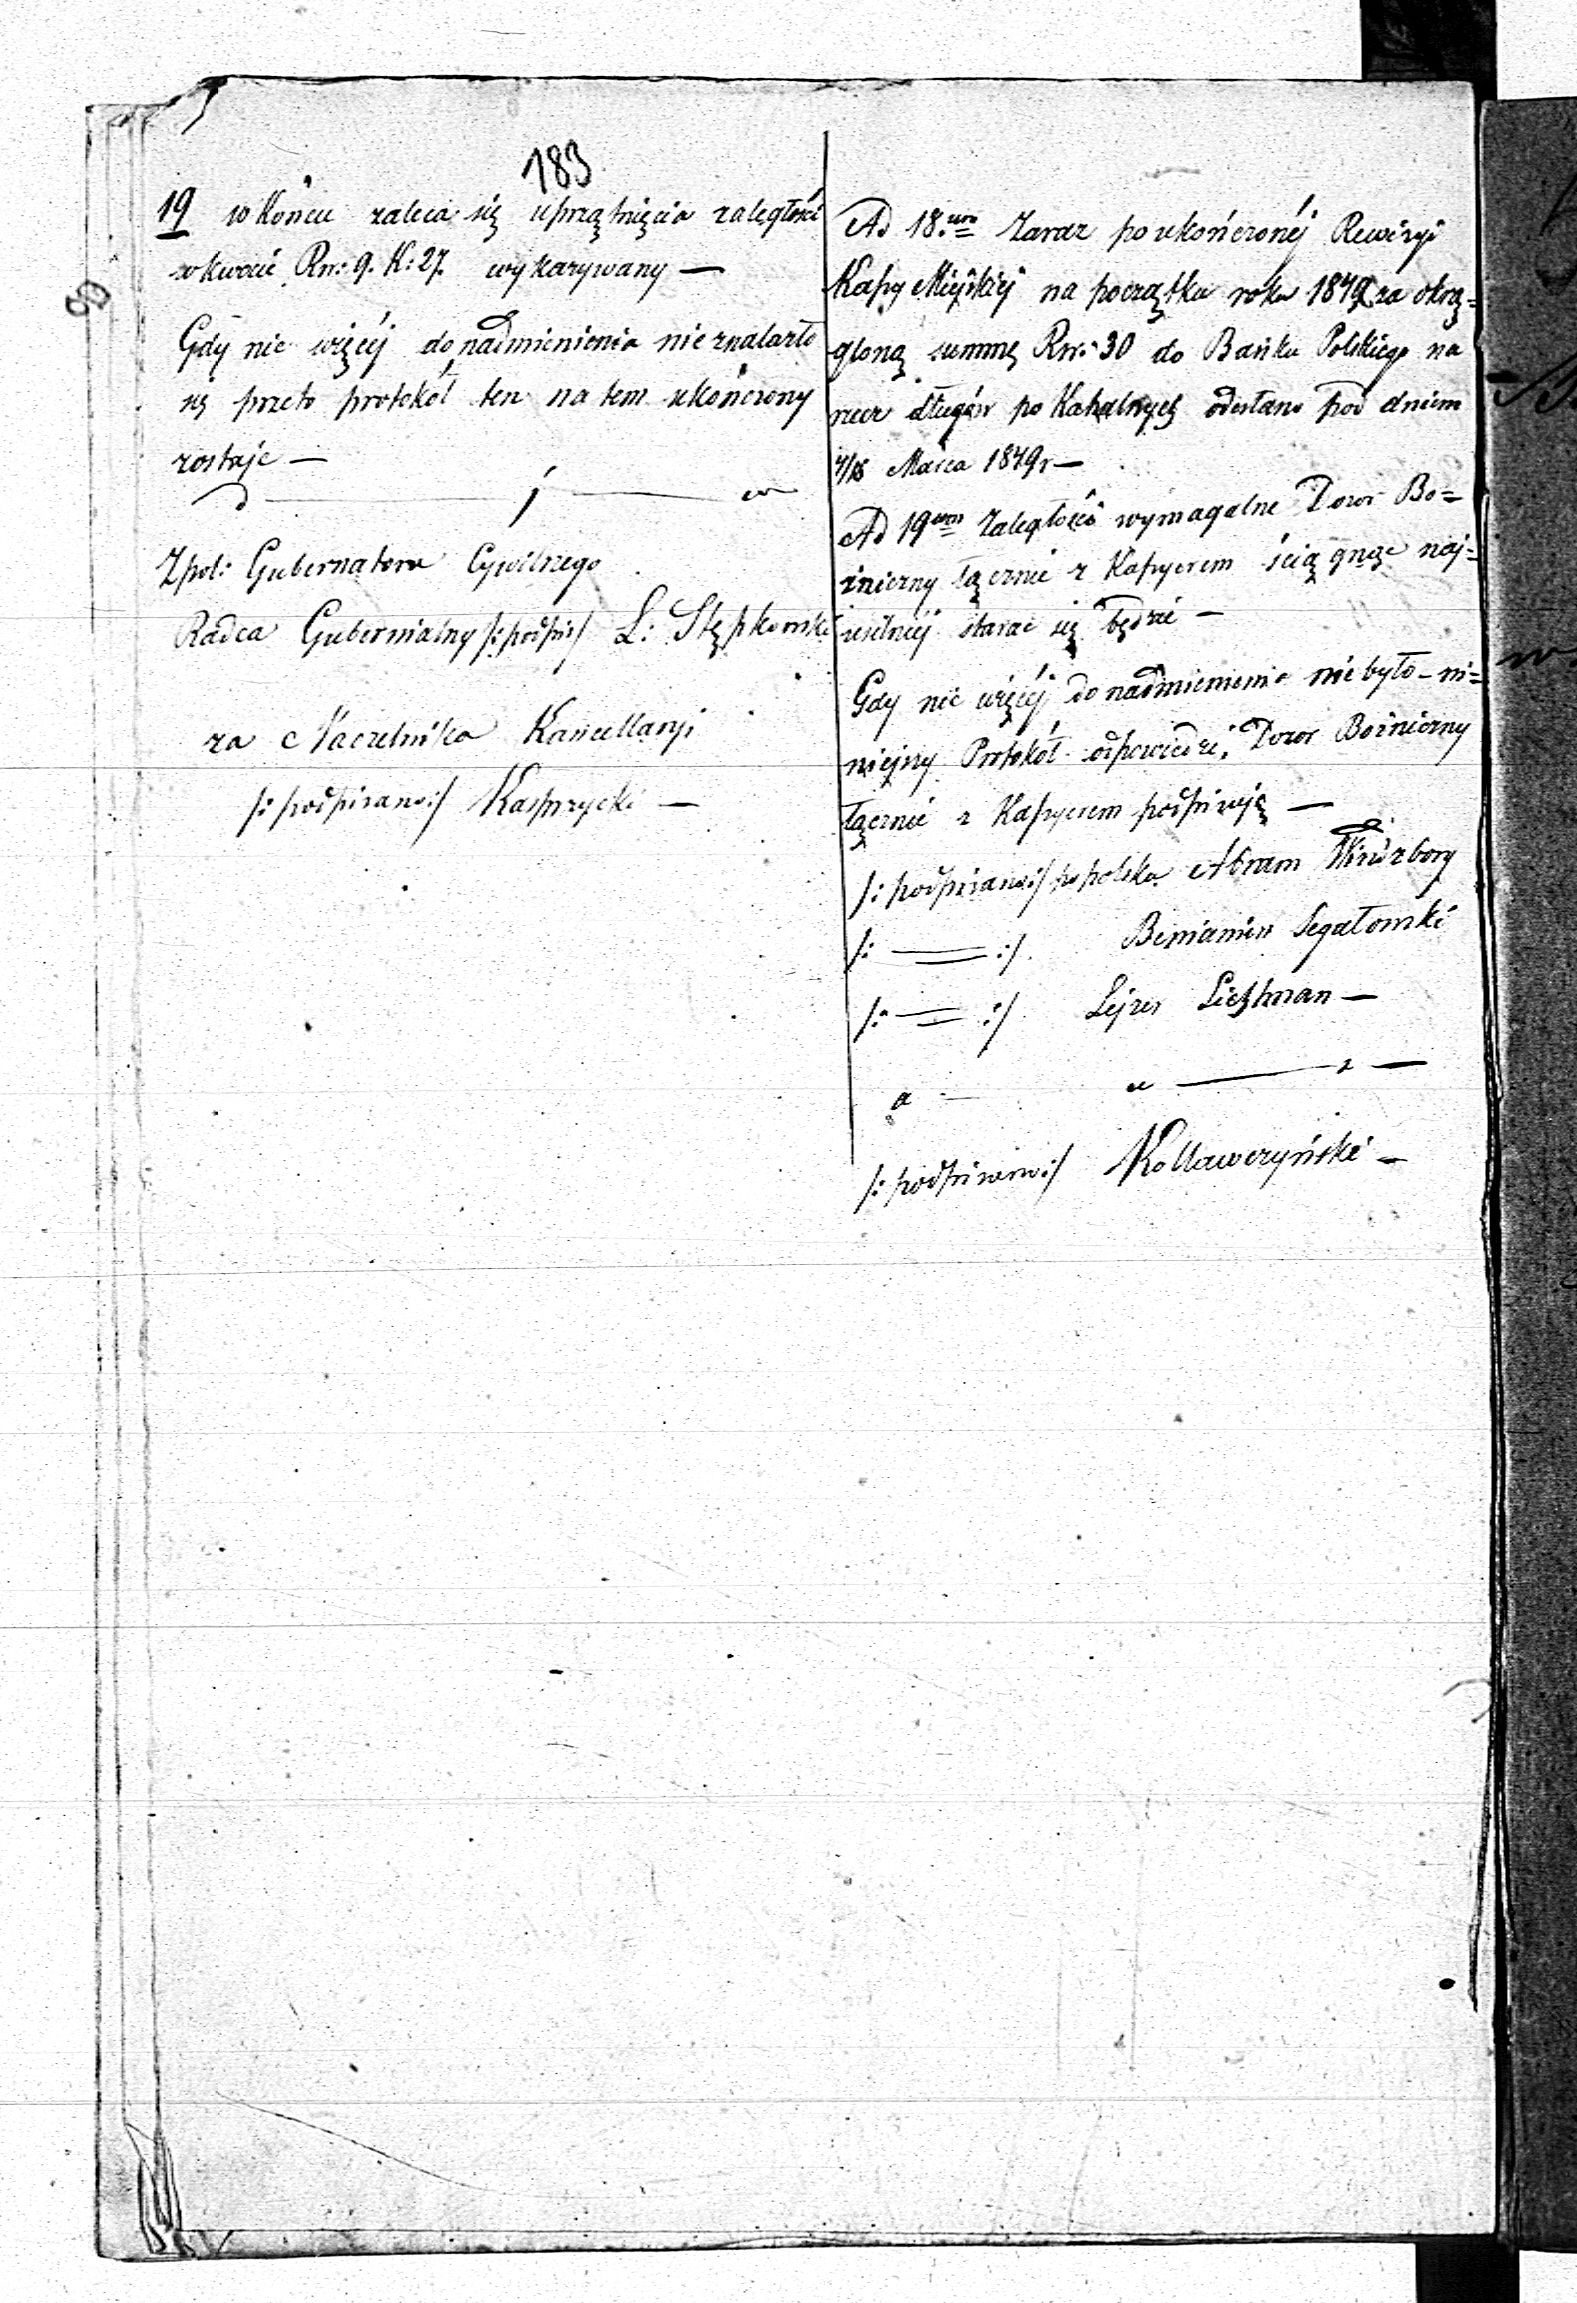 183
19 w Końcu zaleca się uprzątnięcia zaległości
w kwocie Rsr: 9. K: 27. wykazywany —
Gdy nic więcéj do nadmienienia nieznalazło
się przeto protokół ten na tem ukończony
zostaje —
Zpol: Gubernatora Cywilnego
Radca Gubernialny /:podpis/ L: Stępkowski
za Naczelnika Kancellaryi
/: podpisano:/ Kasprzycki —
Ad 18. Zaraz po ukończonéj Rewizyi
Kassy Miejskiéj na początku roku 1849 za okrą=
gloną summę Rsr: 30 do Banku Polskiego na
rzecz długów po Kahalnych odesłano pod dniem
Marca 1849r —
Ad 19 Zaległości wymagalne Dozor Bo=
żniczny łącznie z Kassyerem ściągnąć naj=
usilniéj starać się będzie —
Gdy nic więcéj do nadmienienia niebyło – ni=
niejszy Protokół odpowiedzi, Dozor Bożniczny
łącznie z Kassyerem podpisują —
/: podpisano:/ po polsku Abram
/: —— :/ Beniamin Segałowski
/: —— :/ Lejzer Lichtman —
/: podpisano:/ Kollawczyński —